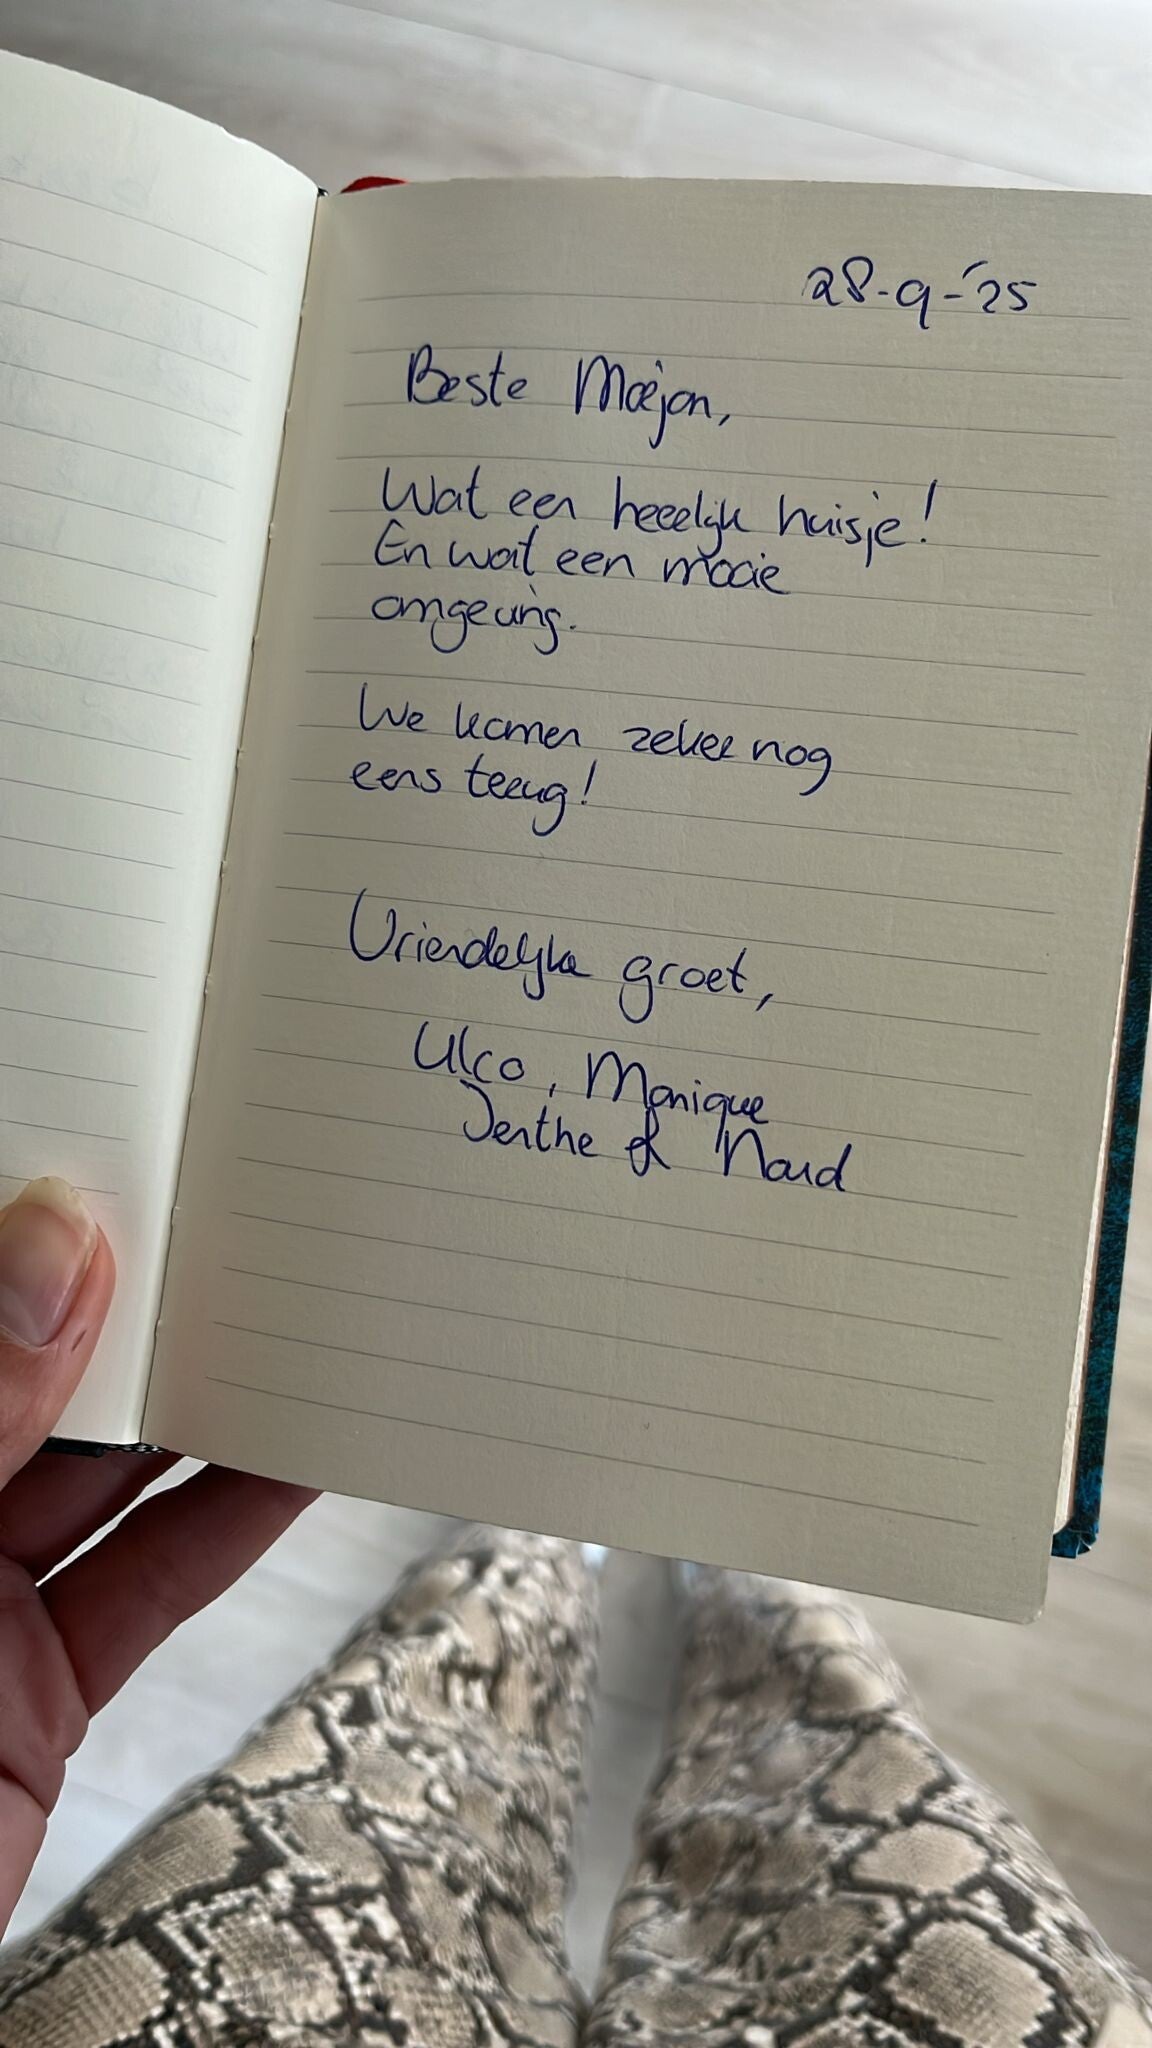 28-9-'25
Beste Marjon,
Wat een heerlijk huisje!
En wat een mooie
omgeving.
We komen zeker nog
eens terug!
Vriendelijke groet,
Ulco, Monique
Jenthe & Noud